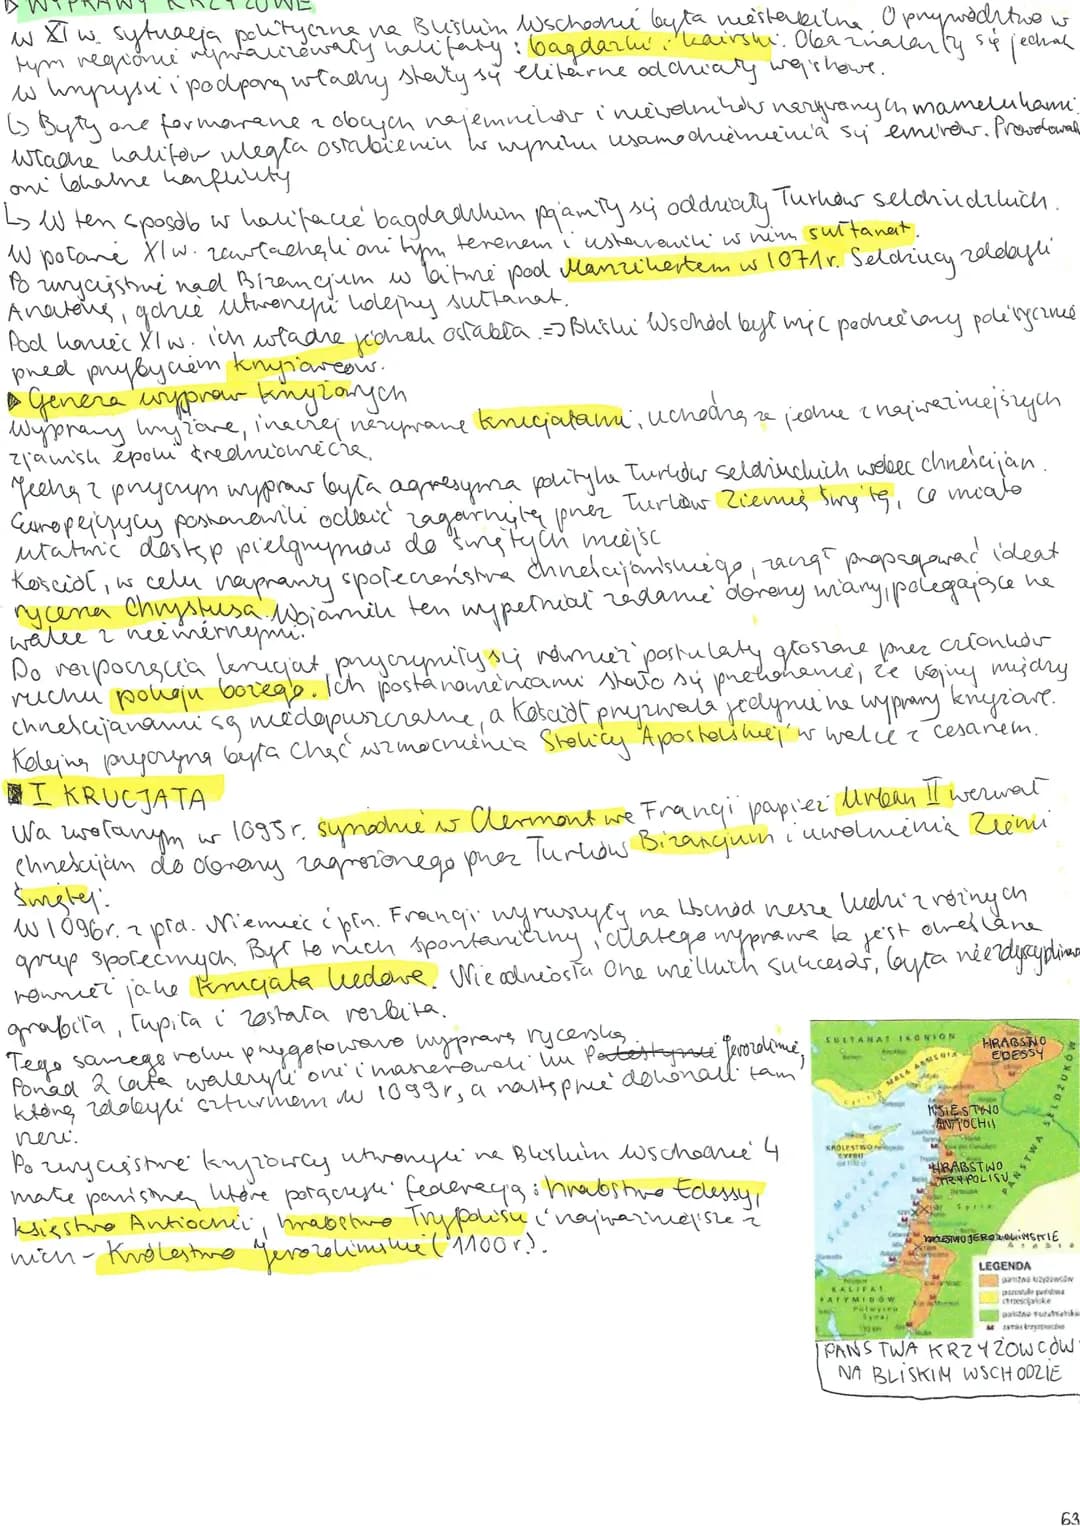 ▷ WYPRAWY KRZYŻOWE
W XI w. sytuacja polityczna na Bliskim Wschodzie była niestabilna. O przywództwo w
tym regionie rywalizowały kalifaty: bagdadzki i kairski. Oba znalazły się jednak
w kryzysie i podporą władzy stały się elitarne oddziały wojskowe.
↳ Były one formowane z obcych najemników i niewolników nazywanych mamelukami.
Władza kalifów uległa osłabieniu w wyniku usamodzielnienia się emirów. Prowadzili
oni lokalne konflikty
↳ W ten sposób w kalifacie bagdadzkim pojawiły się oddziały Turków seldżudzkich.
W połowie XI w. zawładnęli oni tym terenem i ustanowili w nim sułtanat.
Po zwycięstwie nad Bizancjum w bitwie pod Manzikertem w 1071r. Seldżucy zdobyli
Anatolię, gdzie utworzyli kolejny sułtanat.
Pod koniec XI w. ich władza jednak osłabła. => Bliski Wschód był więc podzielony politycznie
przed przybyciem krzyżowców.
▶ Geneza wypraw krzyżowych
Wyprawy krzyżowe, inaczej nazywane krucjatami, uchodzą za jedne z najważniejszych
zjawisk epoki średniowiecza.
Jedną z przyczyn wypraw była agresywna polityka Turków seldżuckich wobec chrześcijan.
Europejczycy postanowili odbić zagarniętą przez Turków Ziemię Świętą, co miało
ułatwić dostęp pielgrzymów do świętych miejsc
Kościół, w celu naprawy społeczeństwa chrześcijańskiego, zaczął propagować ideał
rycerza Chrystusa. Wojownik ten wypełniał zadanie obrony wiary, polegające na
walce z niewiernymi.
Do rozpoczęcia krucjat przyczyniły się również postulaty głoszone przez członków
ruchu pokoju bożego. Ich postanowieniami stało się przekonanie, że wojny między
chrześcijanami są niedopuszczalne, a Kościół przyzwala jedynie na wyprawy krzyżowe.
Kolejną przyczyną była chęć wzmocnienia Stolicy Apostolskiej w walce z cesarzem.
I KRUCJATA
Na zwołanym w 1095r. synodzie w Clermont we Francji papież Urban II wezwał
chrześcijan do obrony zagrożonego przez Turków Bizancjum i uwolnienia Ziemi
Świętej.
W 1096r. z płd. Niemiec i płn. Francji wyruszyły na Wschód rzesze ludzi z różnych
grup społecznych. Był to ruch spontaniczny, dlatego wyprawa ta jest określana
również jako krucjata ludowa. Nie odniosła ona wielkich sukcesów, była niezdyscyplinowana
grabiła, łupiła i została rozbita.
Tego samego roku przygotowano wyprawę rycerską.
Ponad 2 lata walczyli oni i maszerowali ku Palestynie Jerozolimie,
którą zdobyli szturmem w 1099r, a następnie dokonali tam
rzezi.
Po zwycięstwie krzyżowcy utworzyli na Bliskim Wschodzie 4
małe państwa, które połączyli federacją: hrabstwo Edessy,
księstwo Antiochii, hrabstwo Trypolisu i najważniejsze z
nich - Królestwo Jerozolimskie (1100 r.).
SUŁTANAT IKONION
MAŁA ARMENIA
HRABSTWO
EDESSY
KSIĘSTWO
ANTIOCHII
KRÓLESTWO
CYPRU
HRABSTWO
TRYPOLISU
PAŃSTWA SELDŻUKÓW
Morze Śródziemne
Syria
KRÓLESTWO JEROZOLIMSKIE
Arabia
KALIFAT
FATYMIDÓW
Półwysep
Synaj
LEGENDA
państwa krzyżowców
pozostałe państwa
chrześcijańskie
państwa muzułmańskie
zamki krzyżowców
PAŃSTWA KRZYŻOWCÓW
NA BLISKIM WSCHODZIE
63